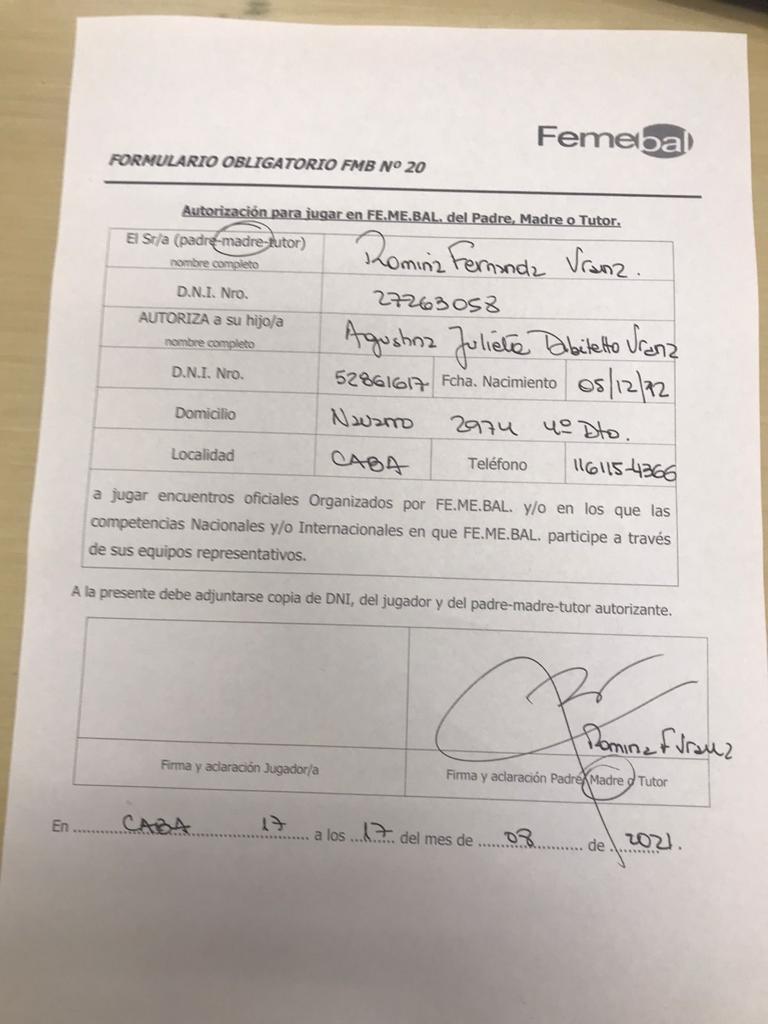 Femebal
FORMULARIO OBLIGATORIO FMB Nº 20
Autorización para jugar en FE.ME.BAL. del Padre, Madre o Tutor.
El Sr/a (padre-madre-tutor) nombre completo Romina Fernanda Vranz.
D.N.I. Nro. 27263058
AUTORIZA a su hijo/a nombre completo Agustina Julieta Vranz
D.N.I. Nro. 52861617 Fcha. Nacimiento 05/12/12
Domicilio Navarro 2974 4º Dto.
Localidad CABA Teléfono 116115-4366
a jugar encuentros oficiales Organizados por FE.ME.BAL. y/o en los que las
competencias Nacionales y/o Internacionales en que FE.ME.BAL. participe a través
de sus equipos representativos.
A la presente debe adjuntarse copia de DNI, del jugador y del padre-madre-tutor autorizante.
Romina F Vranz
Firma y aclaración Jugador/a Firma y aclaración Padre, Madre o Tutor
En CABA 17 a los 17 del mes de 08 de 2021.